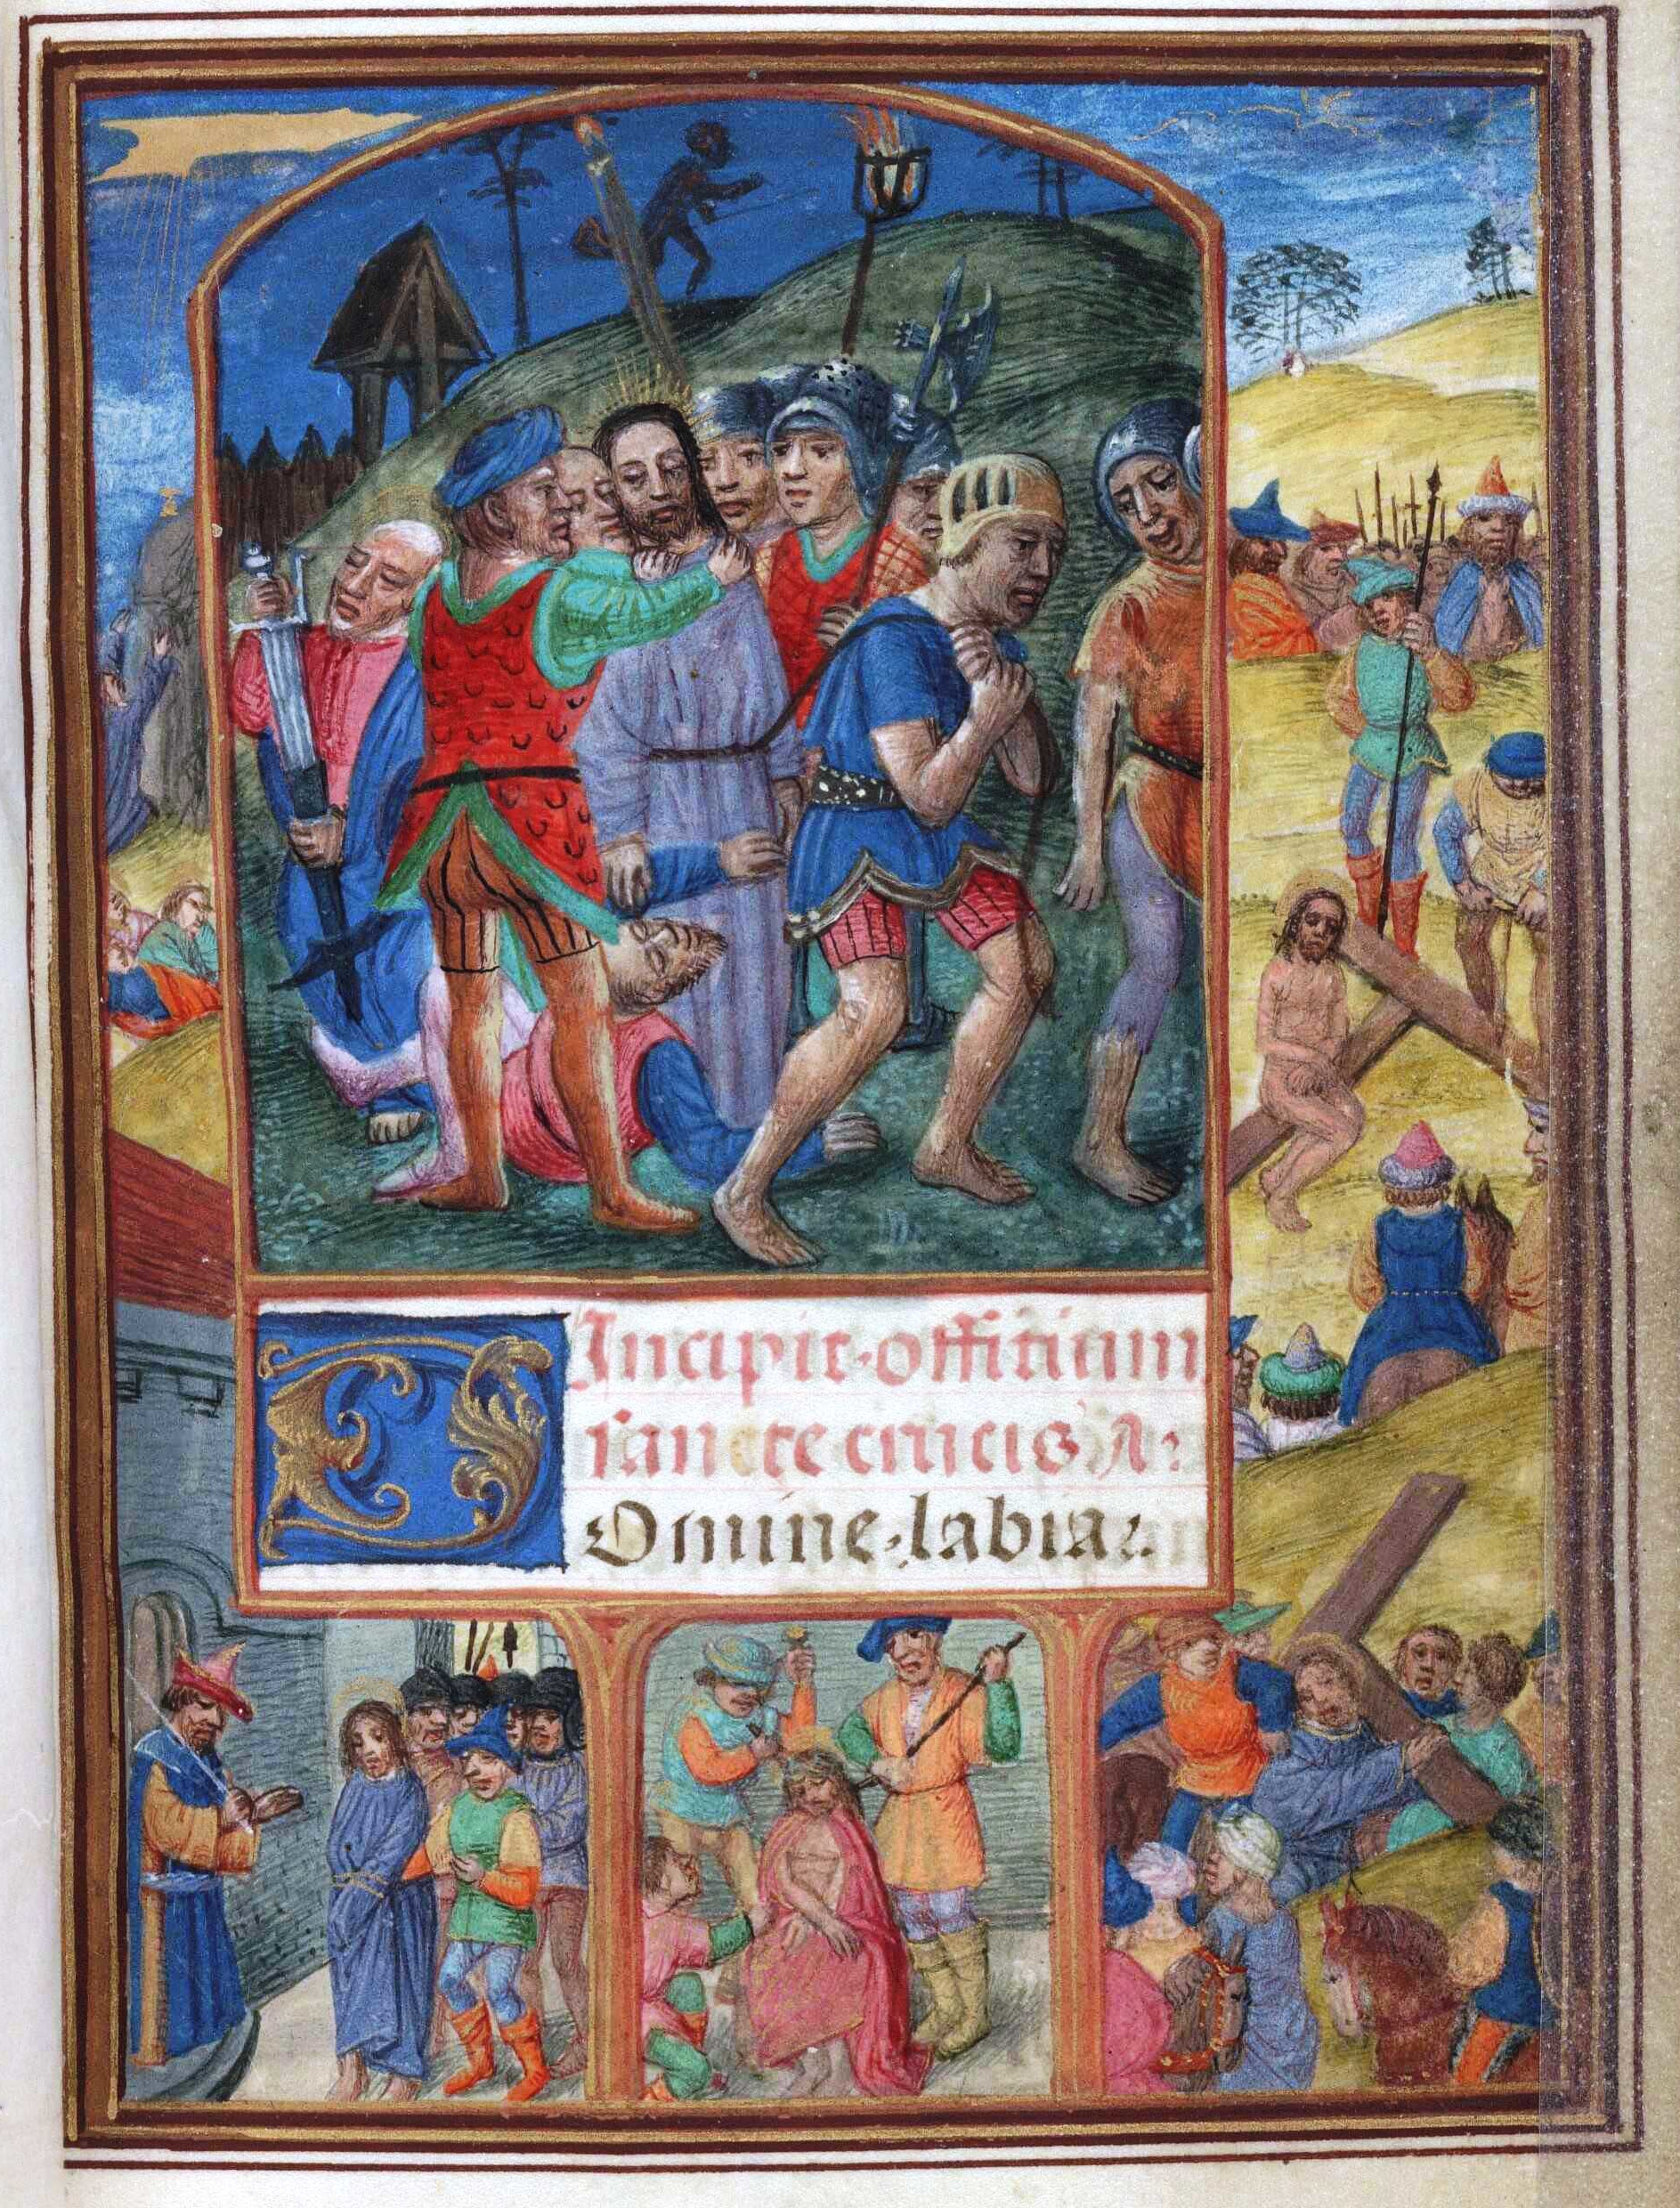 Incipit offitium
sancte crucis A:
Domine labia: